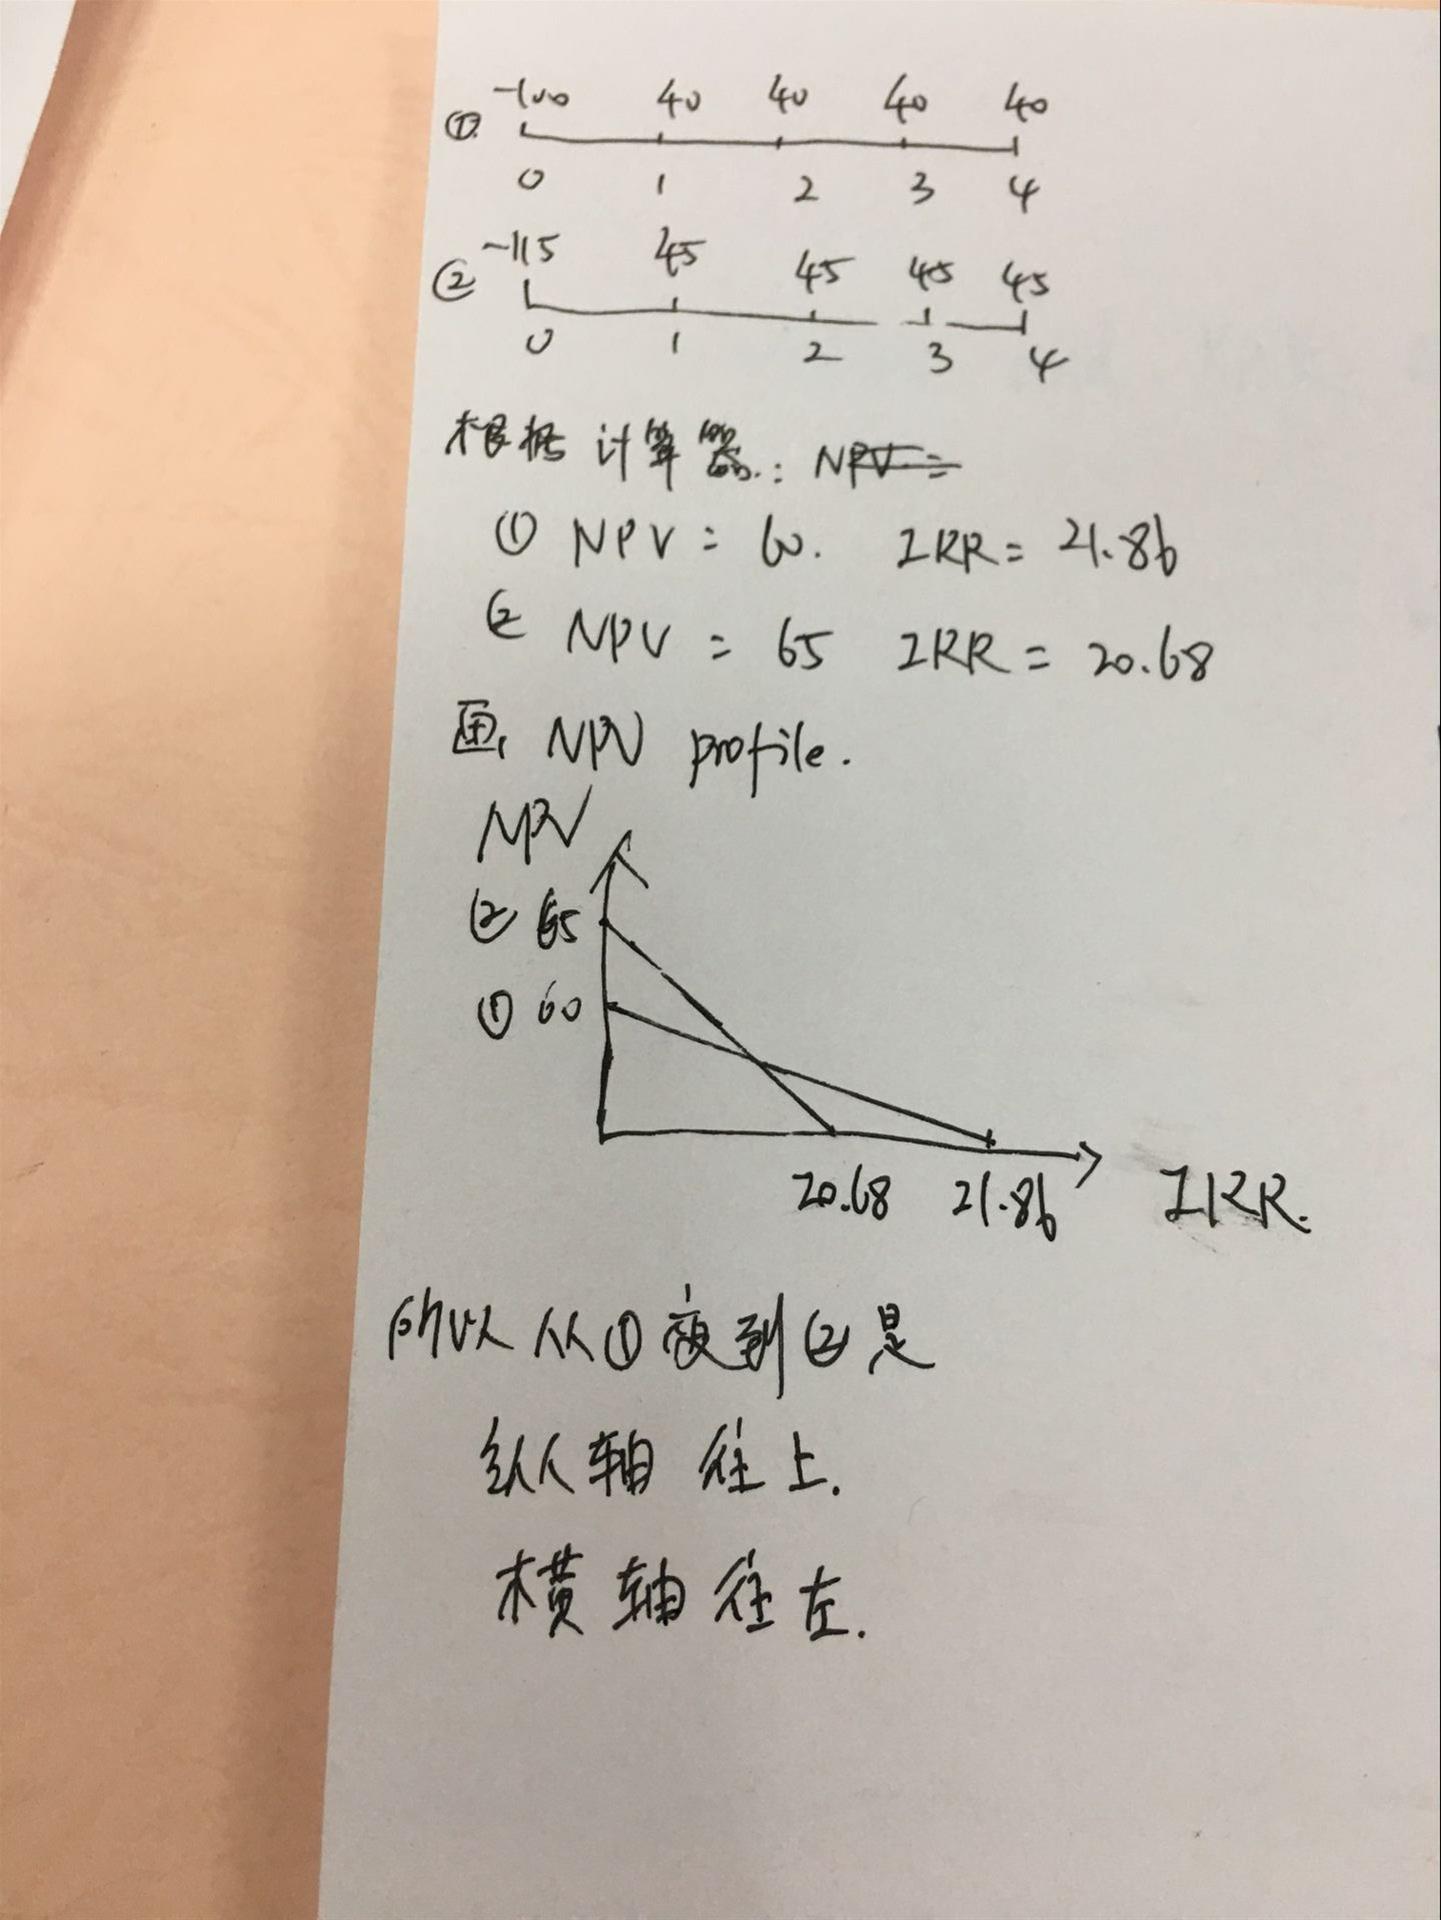 -100 40 40 40 40
①.
0 1 2 3 4
-115 45 45 45 45
②
0 1 2 3 4
根据计算器: NPV=
① NPV = 60. IRR = 21.86
② NPV = 65 IRR = 20.68
画 NPV profile.
NPV
② 65
① 60
20.68 21.86 IRR.
所以从①变到②是
纵轴往上.
横轴往左.